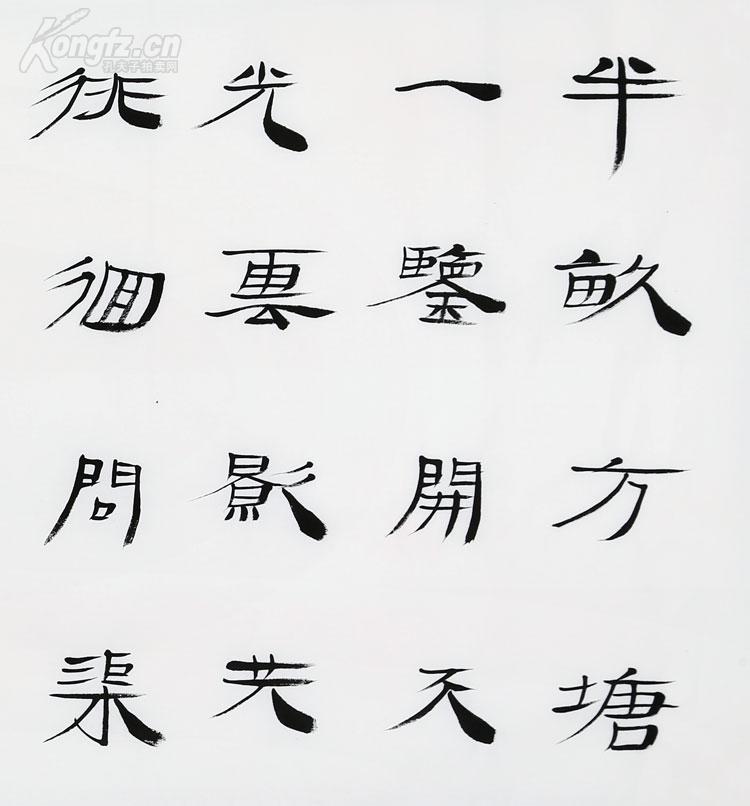 半畝方塘
一鑒開天
光雲影共
徘徊問渠
Kongfz.cn
孔夫子拍卖网